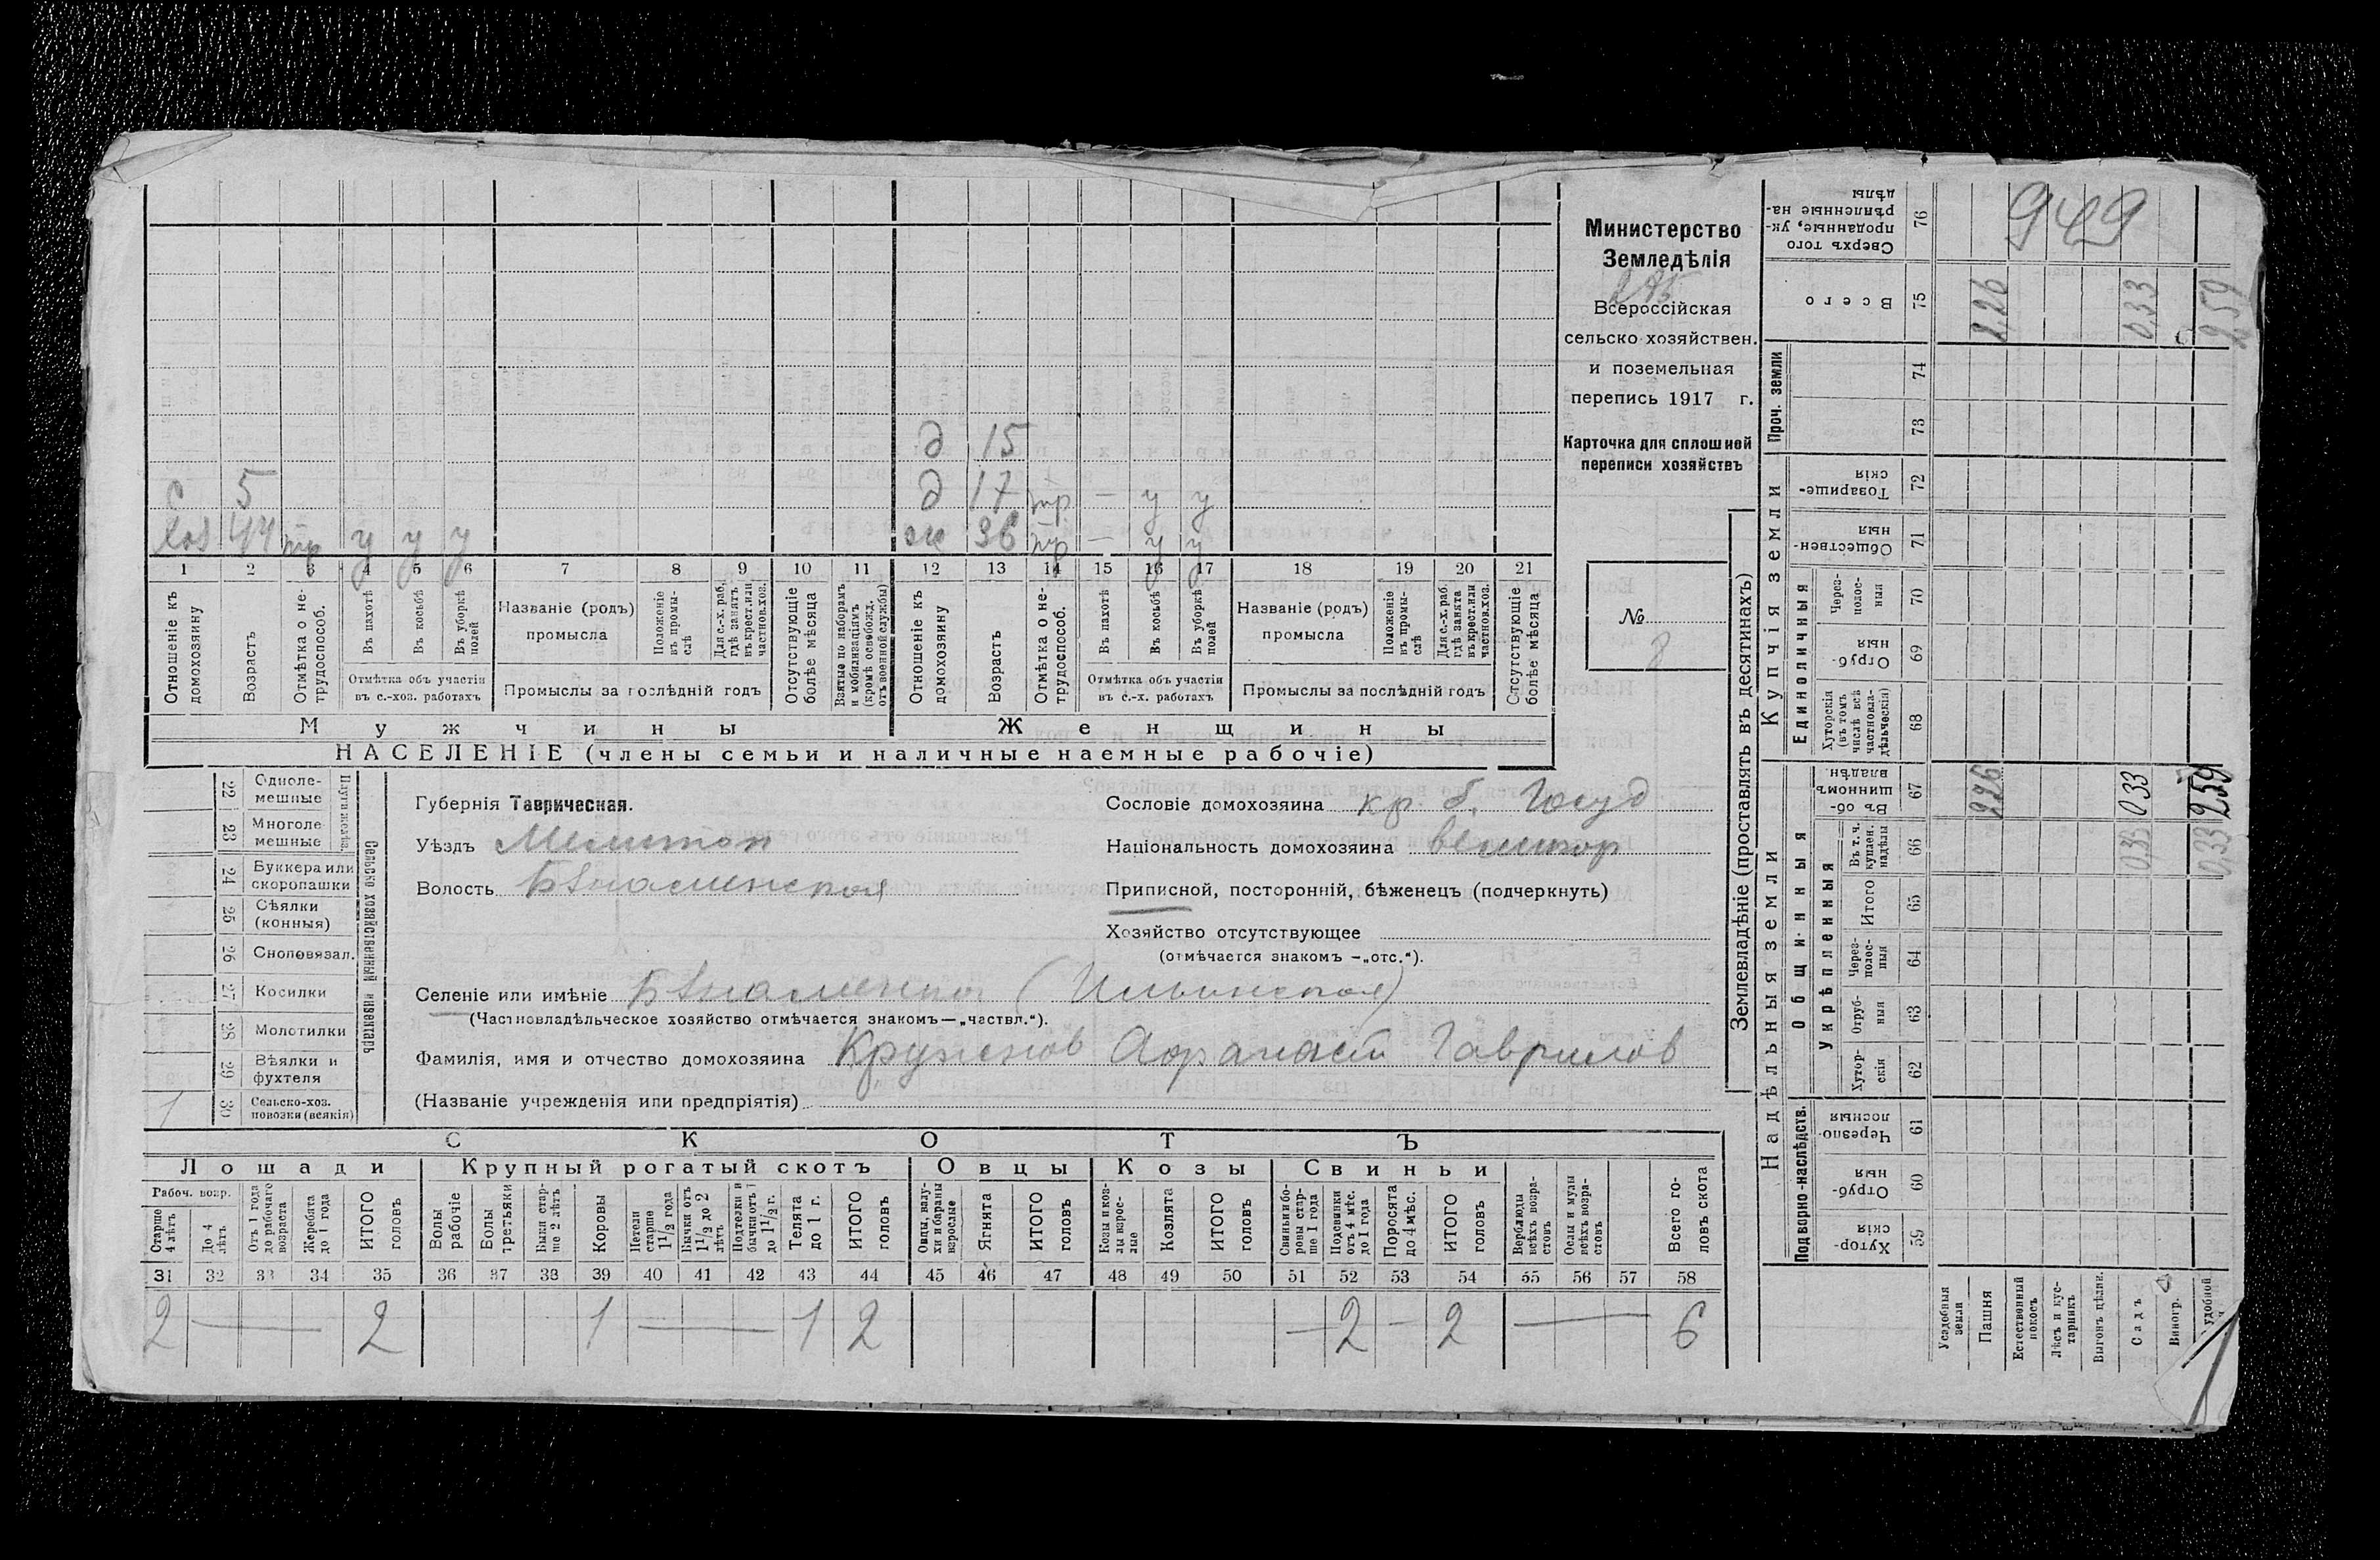 Министерство
Земледѣлія
Всероссійская
сельско хозяйствен.
и поземельная
перепись 1917 г.
Карточка для сплошной
переписи хозяйствъ
№
8
д 15
с 5 д 17 тр — у у
хоз 44 тр у у у ж 36 тр — у у
1 2 3 4 5 6 7 8 9 10 11 12 13 14 15 16 17 18 19 20 21
Отношеніе къ домохозяину
Возрастъ
Отмѣтка о нетрудоспособ.
Въ пахотѣ
Въ косьбѣ
Въ уборкѣ полей
Отмѣтка объ участіи
въ с.-хоз. работахъ
Названіе (родъ)
промысла
Положеніе въ промыслѣ
Для с.-х. раб. гдѣ занятъ въ крест. или частнов. хоз.
Промыслы за послѣдній годъ
Отсутствующіе болѣе мѣсяца
Взятые по наборамъ и мобилизаціямъ (кромѣ освобожд. отъ военной службы)
Отношеніе къ домохозяину
Возрастъ
Отмѣтка о нетрудоспособ.
Въ пахотѣ
Въ косьбѣ
Въ уборкѣ полей
Отмѣтка объ участіи
въ с.-х. работахъ
Названіе (родъ)
промысла
Положеніе въ промыслѣ
Для с.-х. раб. гдѣ занята въ крест. или частнов. хоз.
Промыслы за послѣдній годъ
Отсутствующіе болѣе мѣсяца
Мужчины Женщины
НАСЕЛЕНІЕ (члены семьи и наличные наемные рабочіе)
22 Одноле-мешные
23 Многоле-мешные
Плуги желѣз.
24 Буккера или скоропашки
25 Сѣялки (конныя)
26 Сноповязал.
27 Косилки
28 Молотилки
29 Вѣялки и фухтеля
30 Сельско-хоз. повозки (всякія)
1
Сельско хозяйственный инвентарь
Губернія Таврическая.
Уѣздъ Мелитоп
Волость Бѣломенская
Сословіе домохозяина кр. б. Госуд
Національность домохозяина великор
Приписной, посторонній, бѣженецъ (подчеркнуть)
Хозяйство отсутствующее
(отмѣчается знакомъ —„отс.“).
Селеніе или имѣніе (Ильинская)
(Частновладѣльческое хозяйство отмѣчается знакомъ—„частвл.“).
Фамилія, имя и отчество домохозяина Афанасій Гаврилов
(Названіе учрежденія или предпріятія)
СКОТЪ
Лошади Крупный рогатый скотъ Овцы Козы Свиньи
Рабоч. возр.
Старше 4 лѣтъ
До 4 лѣтъ
Отъ 1 года до рабочаго возраста
Жеребята до 1 года
ИТОГО головъ
Волы рабочіе
Волы третьяки
Быки старше 2 лѣтъ
Коровы
Нетели старше 1 1/2 года
Бычки отъ 1 1/2 до 2 лѣтъ
Подтелки и бычки отъ 1 до 1 1/2 г.
Телята до 1 г.
ИТОГО головъ
Овцы, валухи и бараны взрослые
Ягнята
ИТОГО головъ
Козы и козлы взрослые
Козлята
ИТОГО головъ
Свиньи и боровы старше 1 года
Подсвинки отъ 4 мѣс. до 1 года
Поросята до 4 мѣс.
ИТОГО головъ
Верблюды всѣхъ возрастовъ
Ослы и мулы всѣхъ возрастовъ
Всего головъ скота
31 32 33 34 35 36 37 38 39 40 41 42 43 44 45 46 47 48 49 50 51 52 53 54 55 56 57 58
2 — 2 1 — 1 2 — 2 — 2 — 6
Землевладѣніе (проставлять въ десятинахъ)
Надѣльныя земли Купчія земли Проч. земли
Подворно-наслѣдств. Общинныя
Укрѣпленныя Единоличныя
59 Хутор-скія
60 Отруб-ныя
61 Черезпо-лосныя
62 Хутор-скія
63 Отруб-ныя
64 Через-полос-ныя
65 Итого
66 Въ т. ч. куплен. надѣлы
67 Въ об-щинномъ владѣн
68 Хуторскія (въ томъ числѣ всѣ частновла-дѣльческія)
69 Отруб-ныя
70 Через-полос-ныя
71 Обществен-ныя
72 Товарище-скія
73
74
75 Всего
76 Сверхъ того проданные, ук-рѣпленные на-дѣлы
Усадебныя земли
Пашня 2,26 2,26
Естественный покосъ
Лѣсъ и кустарникъ
Выгонъ цѣлин.
Садъ 0,33 0,33 0,33
Виногр.
удобной 0,33 2,59 2,59
949